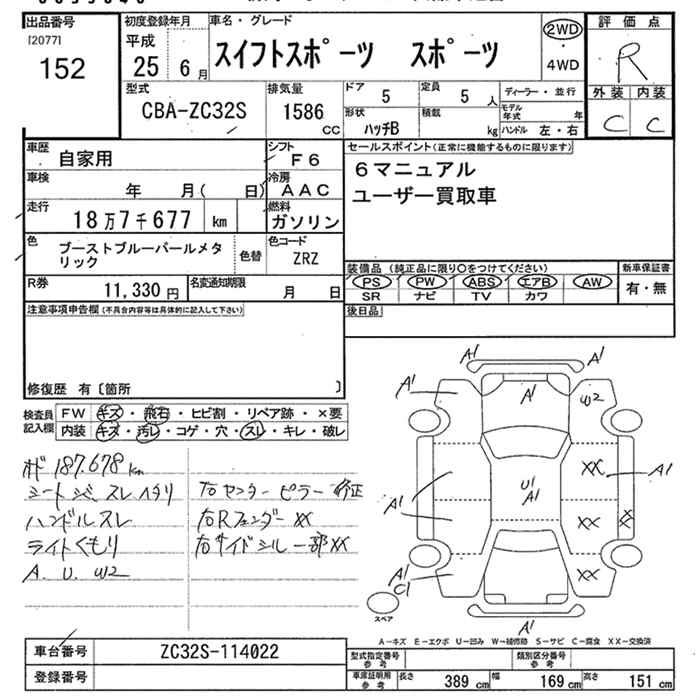 出品番号
[2077]
152
初度登録年月
平成
25 6 月
車名・グレード
スイフトスポーツ スポーツ
2WD
・
4WD
評価点
R
外装 内装
C C
型式
CBA-ZC32S
排気量
1586
CC
ドア
5
定員
5 人
形状
ハッチB
積載
kg
ディーラー・並行
モデル年式 年
ハンドル 左・右
車歴
自家用
シフト
F6
車検
年 月( 日)
冷房
AAC
走行
18万7千677 km
燃料
ガソリン
色
ブーストブルーパールメタリック
色替
色コード
ZRZ
R券
11,330 円
名変通知期限
月 日
セールスポイント(正常に機能するものに限ります)
6マニュアル
ユーザー買取車
装備品 (純正品に限り○をつけてください)
PS PW ABS エアB AW
SR ナビ TV カワ
新車保証書
有・無
後日品
注意事項申告欄(不具合内容等は具体的に記入して下さい)
修復歴 有〔箇所 〕
検査員記入欄
FW キズ・飛石・ヒビ割・リペア跡・×要
内装 キズ・汚レ・コゲ・穴・スレ・キレ・破レ
オド 187.678km
シート シミ スレ ヘタリ
ハンドルスレ
ライトくもり
A. U. W2
右センターピラー修正
右Rフェンダー XX
右サイドシル一部XX
A1 A1
A1 A1 W2
XX A1
U1
A1
A1 XX X
XX
A1
C1
A1
スペア
A-キズ E-エクボ U-凹み W-補修跡 S-サビ C-腐食 XX-交換済
車台番号
ZC32S-114022
登録番号
型式指定番号
参考
類別区分番号
参考
車庫証明用
参考
長さ 389 cm 幅 169 cm 高さ 151 cm